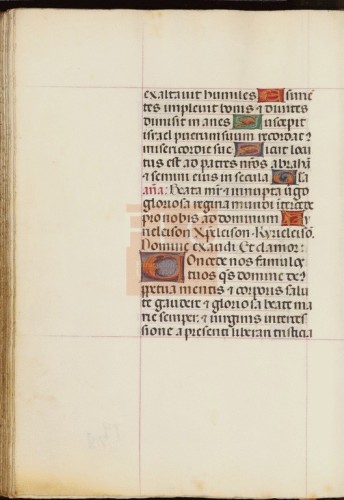 exaltauit humiles Esurie
tes impleuit bonis & diuites
dimisit inanes Suscepit
israel puerum suum recordat9
misericordie sue Sicut locu
tus est ad patres nr̄os abrahā
& semini eius in secula Gl̄a
an̄a: Beata mr̄ & innupta v̄go
gloriosa regina mundi īt̄cede
pro nobis ad dominum Ky
rieleison. Xp̄eleison. Kyrieleisō.
Domine exaudi Et clamor:
Concede nos famulos
tuos q̄s domine de9
perpetua mentis & corporis salu
te gaudere & gloriosa beate ma
rie semper & uirginis interces
sione a presenti liberari tristicia